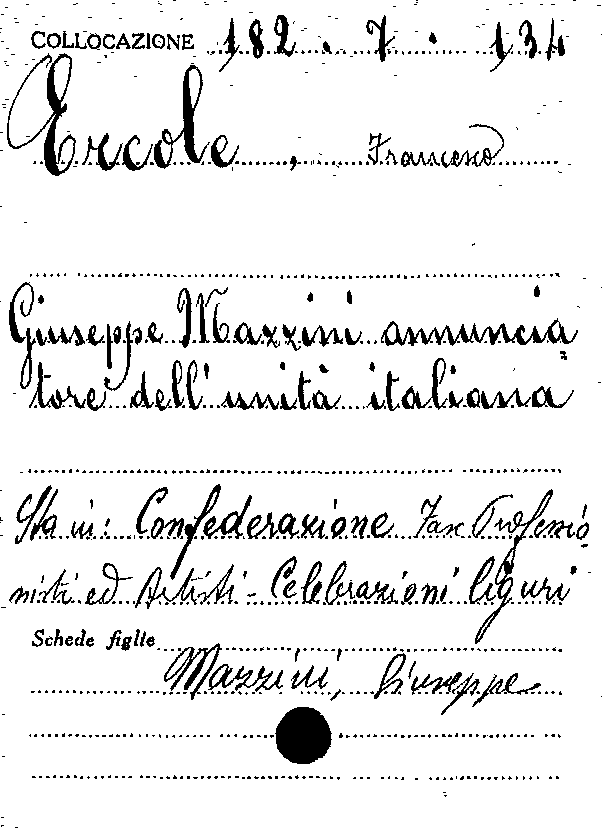 COLLOCAZIONE 182.7.134
Ercole, Francesco
Giuseppe Mazzini annuncia=
tore dell'unità italiana
Sta in: Confederazione Fasc Professio-
nisti ed Artisti - Celebrazioni liguri
Schede figlie
Mazzini, Giuseppe